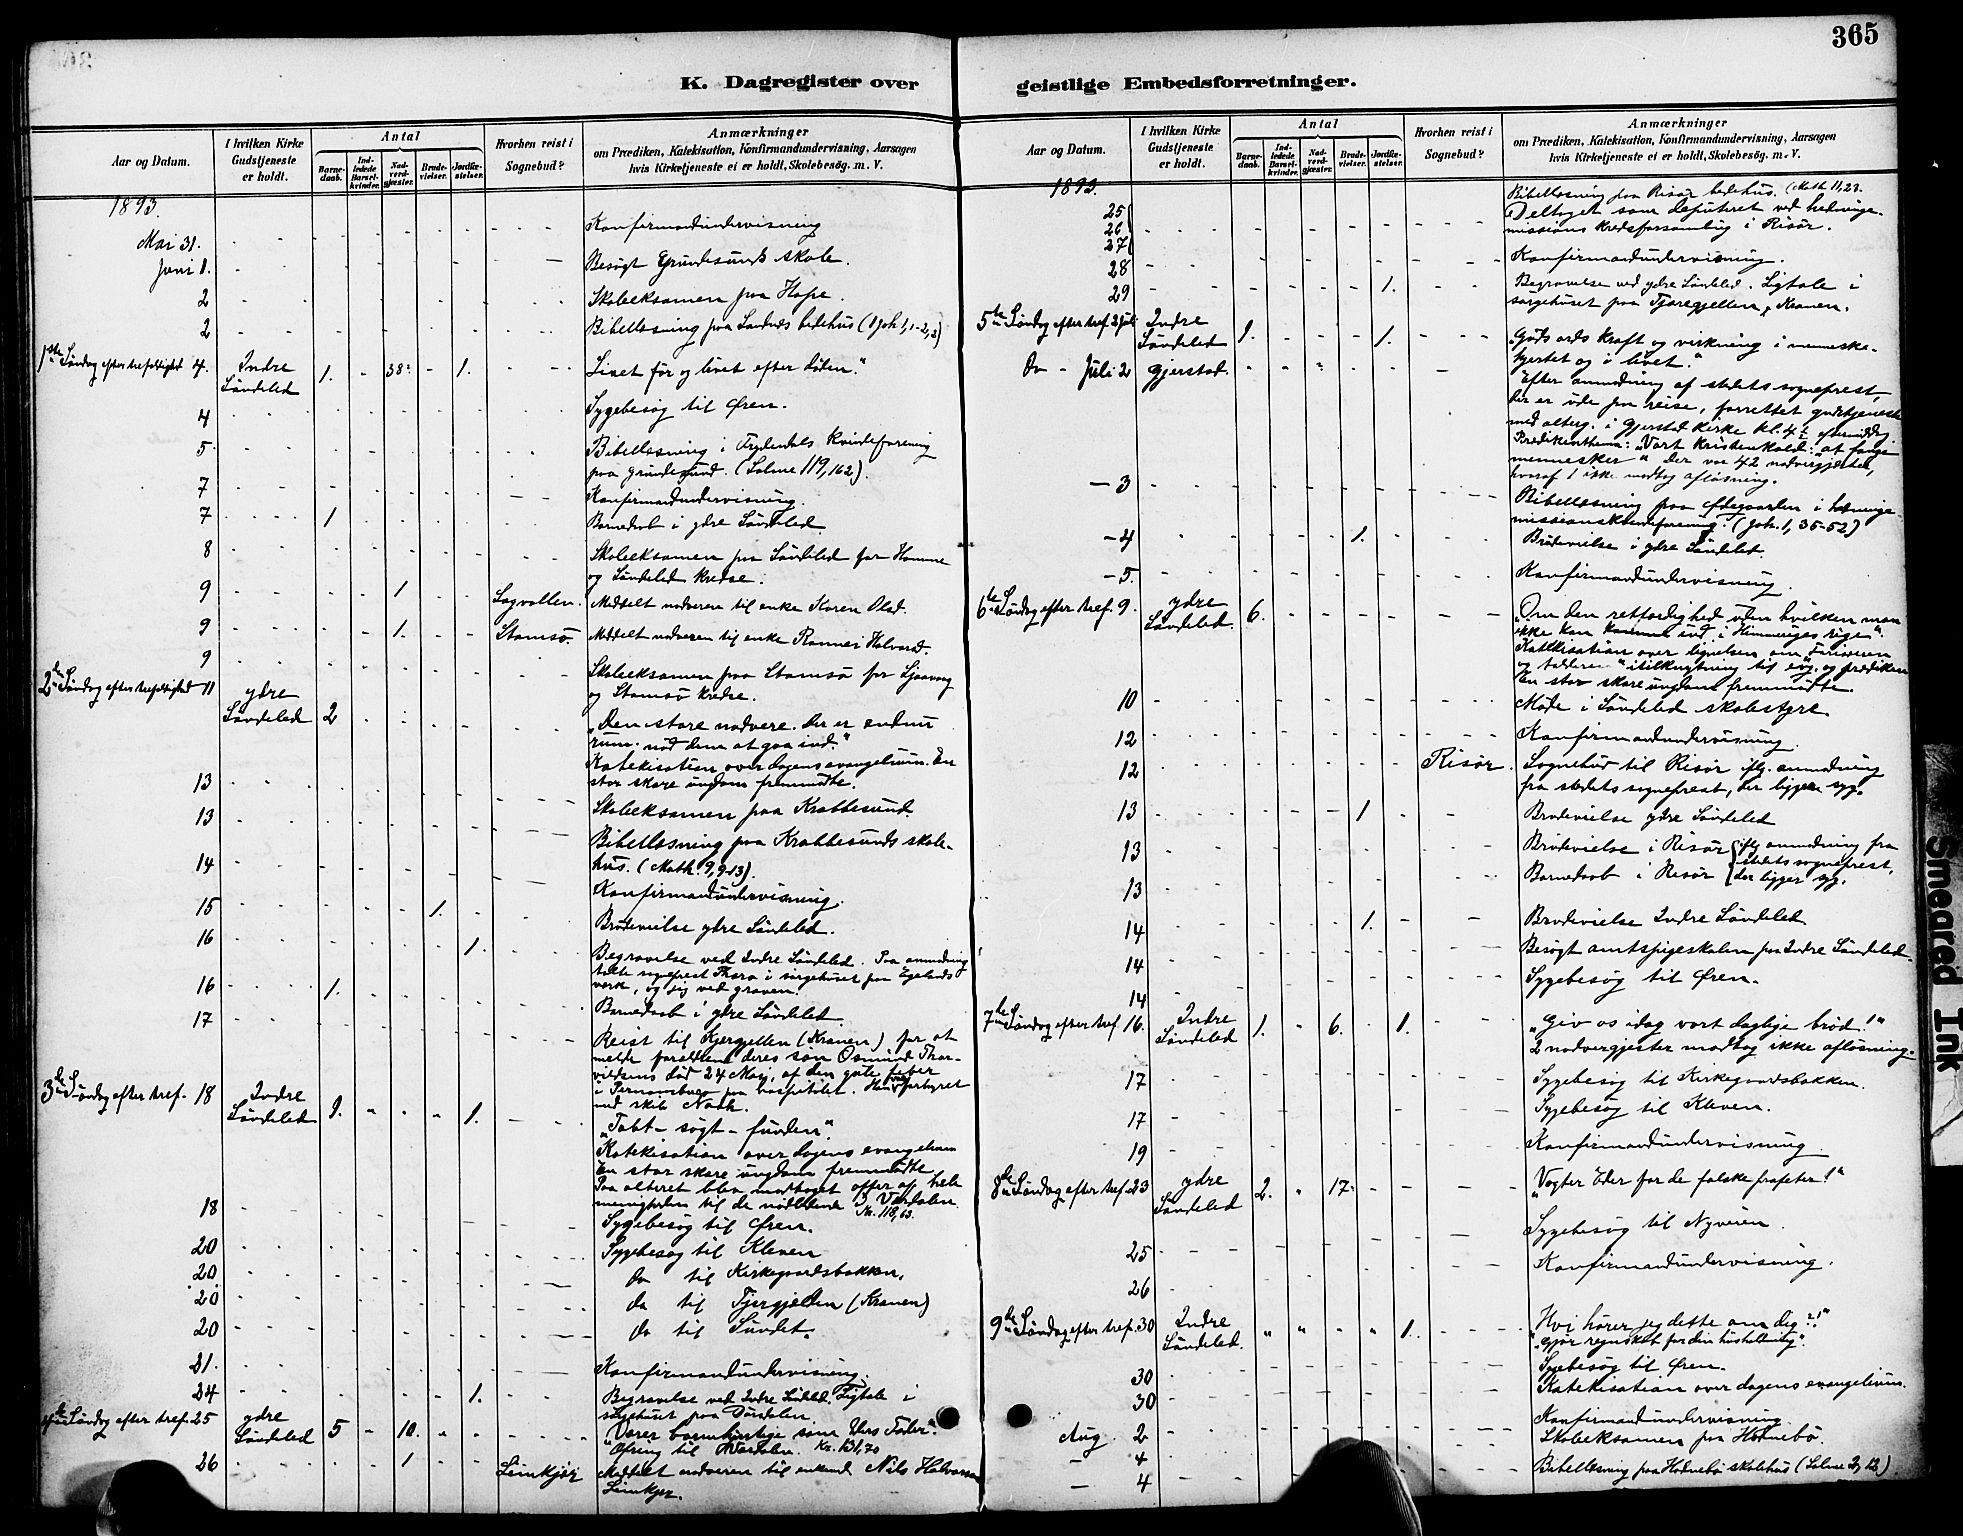 365
K. Dagregister over
geistlige Embedsforretninger.
Aar og Datum.
I hvilken Kirke Gudstjeneste er holdt.
Antal
Barnedaab.
Indledede Barselkvinder.
Nadverdgjæster.
Brudevielser.
Jordfæstelser.
Hvorhen reist i Sognebud?
Anmærkninger
om Prædiken, Katekisation, Konfirmandundervisning, Aarsagen
hvis Kirketjeneste ei er holdt, Skolebesög. m. V.
1893.
Mai 31. Konfirmandundervisning
Juni 1. Besøgt Grundesunds skole.
2 Skoleeksamen paa Hope.
2 Bibellæsning paa Sandnæs bedehus (1 Joh. 1,1-2,2)
1ste Søndag efter trefoldighed 4. Indre Søndeled 1. 38. 1. Livet før og livet efter døden."
4 Sygebesøg til Øren.
5. Bibellæsning i Frydendals Kvindeforening
paa Grundesund. (Salme 119,162).
7 Konfirmandundervisning.
7 1 Barnedaab i ydre Søndeled
8 Skoleeksamen paa Søndeled for Homme
og Søndeled kredse.
9 1 Sagvollen. Meddelt nadveren til enke Karen Olsd.
9 1. Stamsø. Meddelt nadveren til enke Ronnei Halvorsd.
9 Skoleeksamen paa Stamsø for
og Stamsø kredse.
2den Søndag efter trefoldighed 11 ydre Søndeled 2 „Den store nadvere. Der er endnu
rum. nød dem at gaa ind."
Katekisation over dagens evangelium. En
stor skare ungdom fremmødte.
13 Skoleeksamen paa Krabbesund.
13 Bibellæsning paa Krabbesunds skole-
hus. (Math. 9,9-13).
14 Konfirmandundervisning.
15 1. Brudevielse ydre Søndeled.
16 1. Begravelse ved Indre Søndeled. Paa anmodning
talte sogneprest Thora i sørgehuset paa Egelands
verk, og jeg ved graven.
16 1. Barnedaab i ydre Søndeled.
17 Reist til Kjergjellen (Kranen) for at
melde forældrene deres søn Osmund Thor-
vildsens død 24 Mai, af den gule feber
i Pernambuco paa hospitalet. Han var forhyret
med skib Noah.
3die Søndag efter tref. 18 Indre Søndeled 1. 1. „Tabt – søgt – funden".
Katekisation over dagens evangelium
En stor skare ungdom fremmødte
Paa alteret blev modtaget offer af hele
menigheden til de nødlidende i Værdalen.
Kr. 118,63.
18 Sygebesøg til Øren.
20 Sygebesøg til Kleven
20 do til Kirkegaardsbakken,
20 do til Fjergjellen (Kranen)
20 do til Sundet.
21. Konfirmandundervisning.
24 1. Begravelse ved Indre Søndeled. Ligtale i
sørgehuset paa Dørdalen.
4de Søndag efter tref. 25 ydre Søndeled 5 10. „Værer barmhjertige som Eders Fader".
Ofring til Værdalen. Kr. 131,70
26 1 Leimkjær Meddelt nadveren til enkemd. Nils Halvorsen
Leimkjær.
Aar og Datum.
I hvilken Kirke Gudstjeneste er holdt.
Antal
Barnedaab.
Indledede Barselkvinder.
Nadverdgjæster.
Brudevielser.
Jordfæstelser.
Hvorhen reist i Sognebud?
Anmærkninger
om Prædiken, Katekisation, Konfirmandundervisning, Aarsagen
hvis Kirketjeneste ei er holdt, Skolebesög. m. V.
1893.
25 Bibellæsning paa Risør bedehus. (Math 11,23.
26 Deltaget som deputeret ved hedninge-
27 missions kredsforsamling i Risør.
28 Konfirmandundervisning.
29 1. Begravelse ved ydre Søndeled. Ligtale i
sørgehuset paa Fjæregjellen, Kranen.
5te Søndag efter tref. 2 Juli Indre Søndeled 1. 1. „Guds ords kraft og virkning i menneske-
hjertet og i livet."
Do - Juli 2 Gjerstad. Efter anmodning af stedets sogneprest,
der er ude paa reise, forrettet gudstjeneste
med alterg. i Gjerstad Kirke kl. 4½ eftermiddag.
Prædikenthema: „Vort kristenkald: at fange
mennesker" Der var 42 nadvergjæster,
hvoraf 1 ikke modtog afløsning.
3 Bibellæsning paa Ødegaarden i hedninge-
missionskvindeforening. (Joh. 1, 35-52)
4 1. Brudevielse i ydre Søndeled.
5. Konfirmandundervisning.
6te Søndag efter tref. 9. ydre Søndeled 6. „Om den retfærdighed uden hvilken man
ikke kan komme ind i Himmeriges rige".
Katekisation over lignelsen om Farisæeren
og tolderen" i tilknytning til evg. og prædiken
En stor skare ungdom fremmødte.
10 Møde i Søndeled skolestyre.
12 Konfirmandundervisning.
12 Risør. Sognebud til Risør iflg. anmodning
fra stedets sogneprest, der ligger syg.
13 1 Brudevielse ydre Søndeled
13 Brudevielse i Risør iflg anmodning fra
stedets sogneprest,
13 Barnedaab i Risør der ligger syg.
14 1. Brudevielse Indre Søndeled
14 Besøgt amtspigeskolen paa Indre Søndeled.
14 Sygebesøg til Øren.
7de Søndag efter tref. 16. Indre Søndeled 1. 6. 1. „Giv os idag vort daglige brød!"
2 nadvergjester modtog ikke afløsning.
17 Sygebesøg til Kirkegaardsbakken.
17 Sygebesøg til Kleven.
19 Konfirmandundervisning
8de Søndag efter tref. 23 ydre Søndeled 2. 17. „Vogter Eder for de falske profeter!"
Sygebesøg til Nyveien.
25
26 Konfirmandundervisning.
9de Søndag efter tref. 30 Indre Søndeled. 1. Hvi hører jeg dette om dig?!
„Gjør regnskab for din husholdning".
30 Sygebesøg til Øren.
30 Katekisation over dagens evangelium.
Aug. 2 Konfirmandundervisning
4 Skoleeksamen paa Hødnebø.
4 Bibellæsning paa Hødnebø skolehus (Salme 2, 12)
Smeared Ink